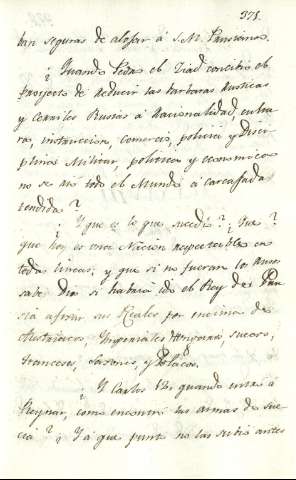 375.
ban seguras de alojar á S. M. Prusiana.
¿Quando Pedro el Czar concibió el
proyecto de reducir las barbaras rusticas
y cerriles Rusias á racionalidad, cultu-
ra, instruccion, comercio, policia y disci-
plina Militar, politica y economica
no se rió todo el Mundo á carcajada
tendida?
Y que es lo que sucedió? Que?
que hoy es una Nacion respectable en
todas lineas; y que si no fueran los Rusos
sabe Dios si habria ido el Rey de Pru-
sia á fixar sus Reales por encima de
Austriacos Imperiales suecos,
franceses, Saxones, y Polacos.
¿Y Carlos quando entró á
Reynar, como encontró las armas de Sue-
cia? ¿Y á que punto no las subió antes